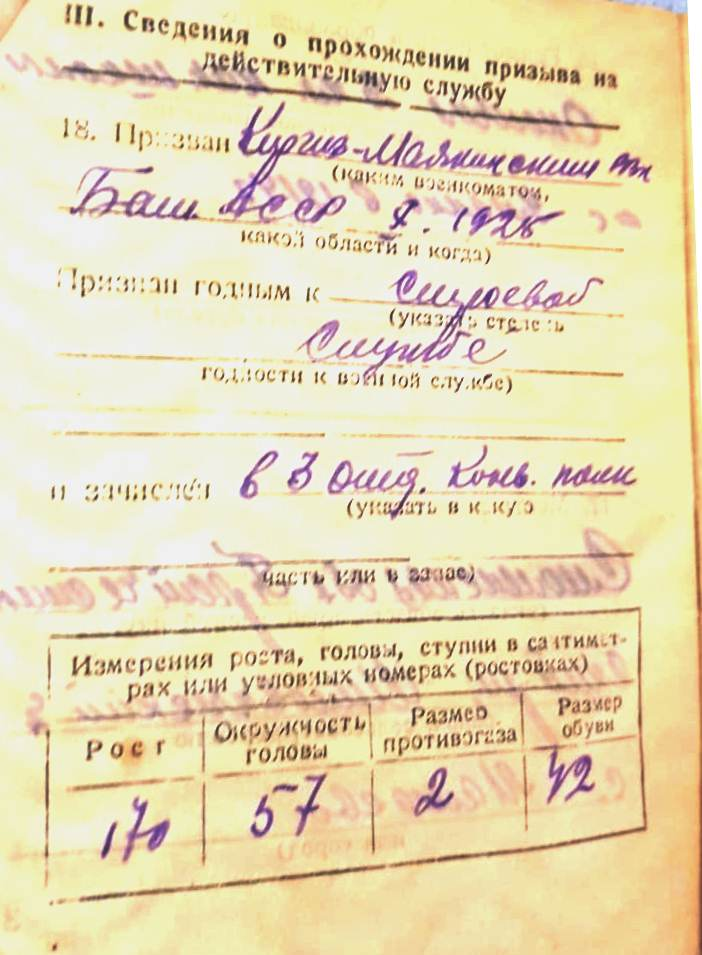 III. Сведения о прохождении призыва на
действительную службу
18. Призван Кургиз-Маякинским рвк
(каким военкоматом,
Баш АССР X. 1925
какой области и когда)
Признан годным к строевой
(указать степень
службе
годности к военной службе)
и зачислен в 3 отд. Конв. полк
(указать в к кую
часть или в запас)
Измерения роста, головы, ступни в сантимет-
рах или условных номерах (ростовках)
Рост Окружность головы Размер противогаза Размер обуви
170 57 2 42